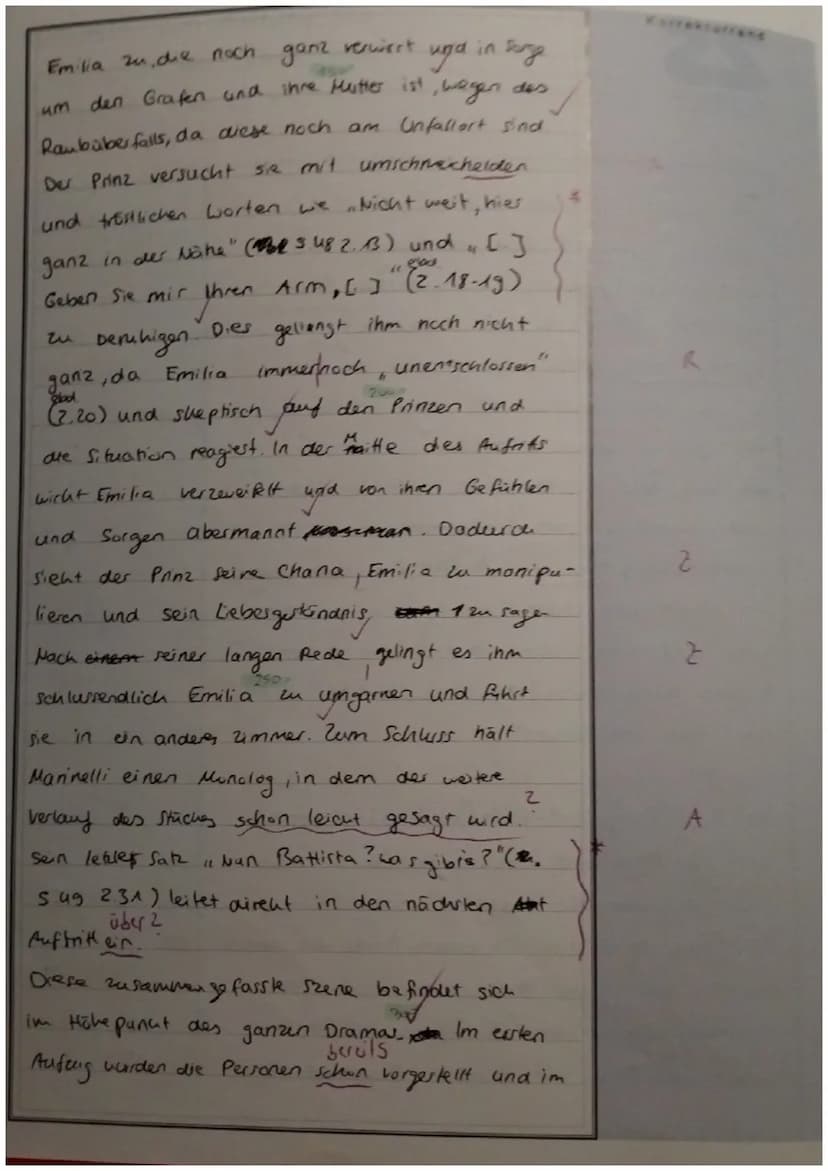 Korrekturrand
Emilia zu, die noch ganz verwirrt und in Sorge
150
um den Grafen und ihre Mutter ist, wegen des
Raubüberfalls, da diese noch am Unfallort sind
Der Prinz versucht sie mit umschmeichelden
und tröstlichen Worten wie „Nicht weit, hier
*
ganz in der Nähe" (S 48 Z. 13) und „[ ]
Geben Sie mir Ihren Arm, [ ]" (ebd Z. 18-19)
zu beruhigen. Dies gelingt ihm noch nicht
ganz, da Emilia immernoch „unentschlossen"
R
200
(ebd Z. 20) und skeptisch auf den Prinzen und
die Situation reagiert. In der Mitte des Auftritts
wirkt Emilia verzweifelt und von ihren Gefühlen
und Sorgen übermannt. Dadurch
sieht der Prinz seine Chana, Emilia zu manipu-
Z
lieren und sein Liebesgeständnis, 1 zu sagen
Nach einem seiner langen Rede, gelingt es ihm
Z
250
schlussendlich Emilia zu umgarnen und führt
sie in ein anderes Zimmer. Zum Schluss hält
Marinelli einen Monolog, in dem der weitere
?
Verlauf des Stückes schon leicht gesagt wird.
A
Sein letzter Satz „Nun Battista? Was gibts?" (
*
S 49 Z 31) leitet direkt in den nächsten
über?
Auftritt ein.
Diese zusammengefasste Szene befindet sich
300
im Höhepunkt des ganzen Dramas. Im ersten
bereits
Aufzug wurden die Personen schon vorgestellt und im